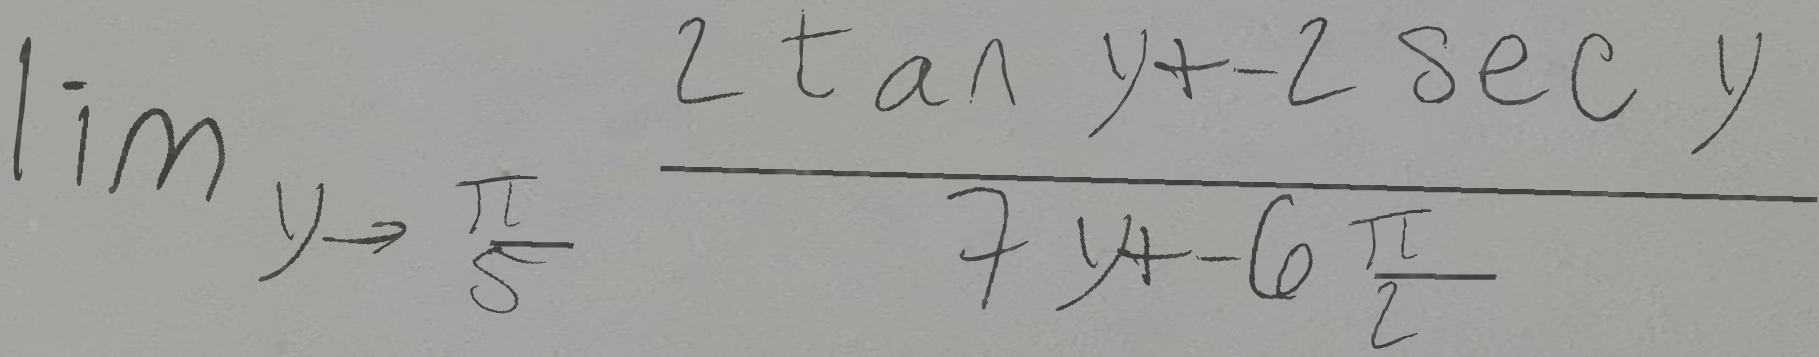 lim y→π/5 (2 tan y+-2 sec y)/(7y+-6 π/2)